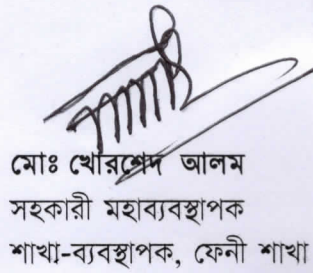 মোঃ খোরশেদ আলম
সহকারী মহাব্যবস্থাপক
শাখা-ব্যবস্থাপক, ফেনী শাখা